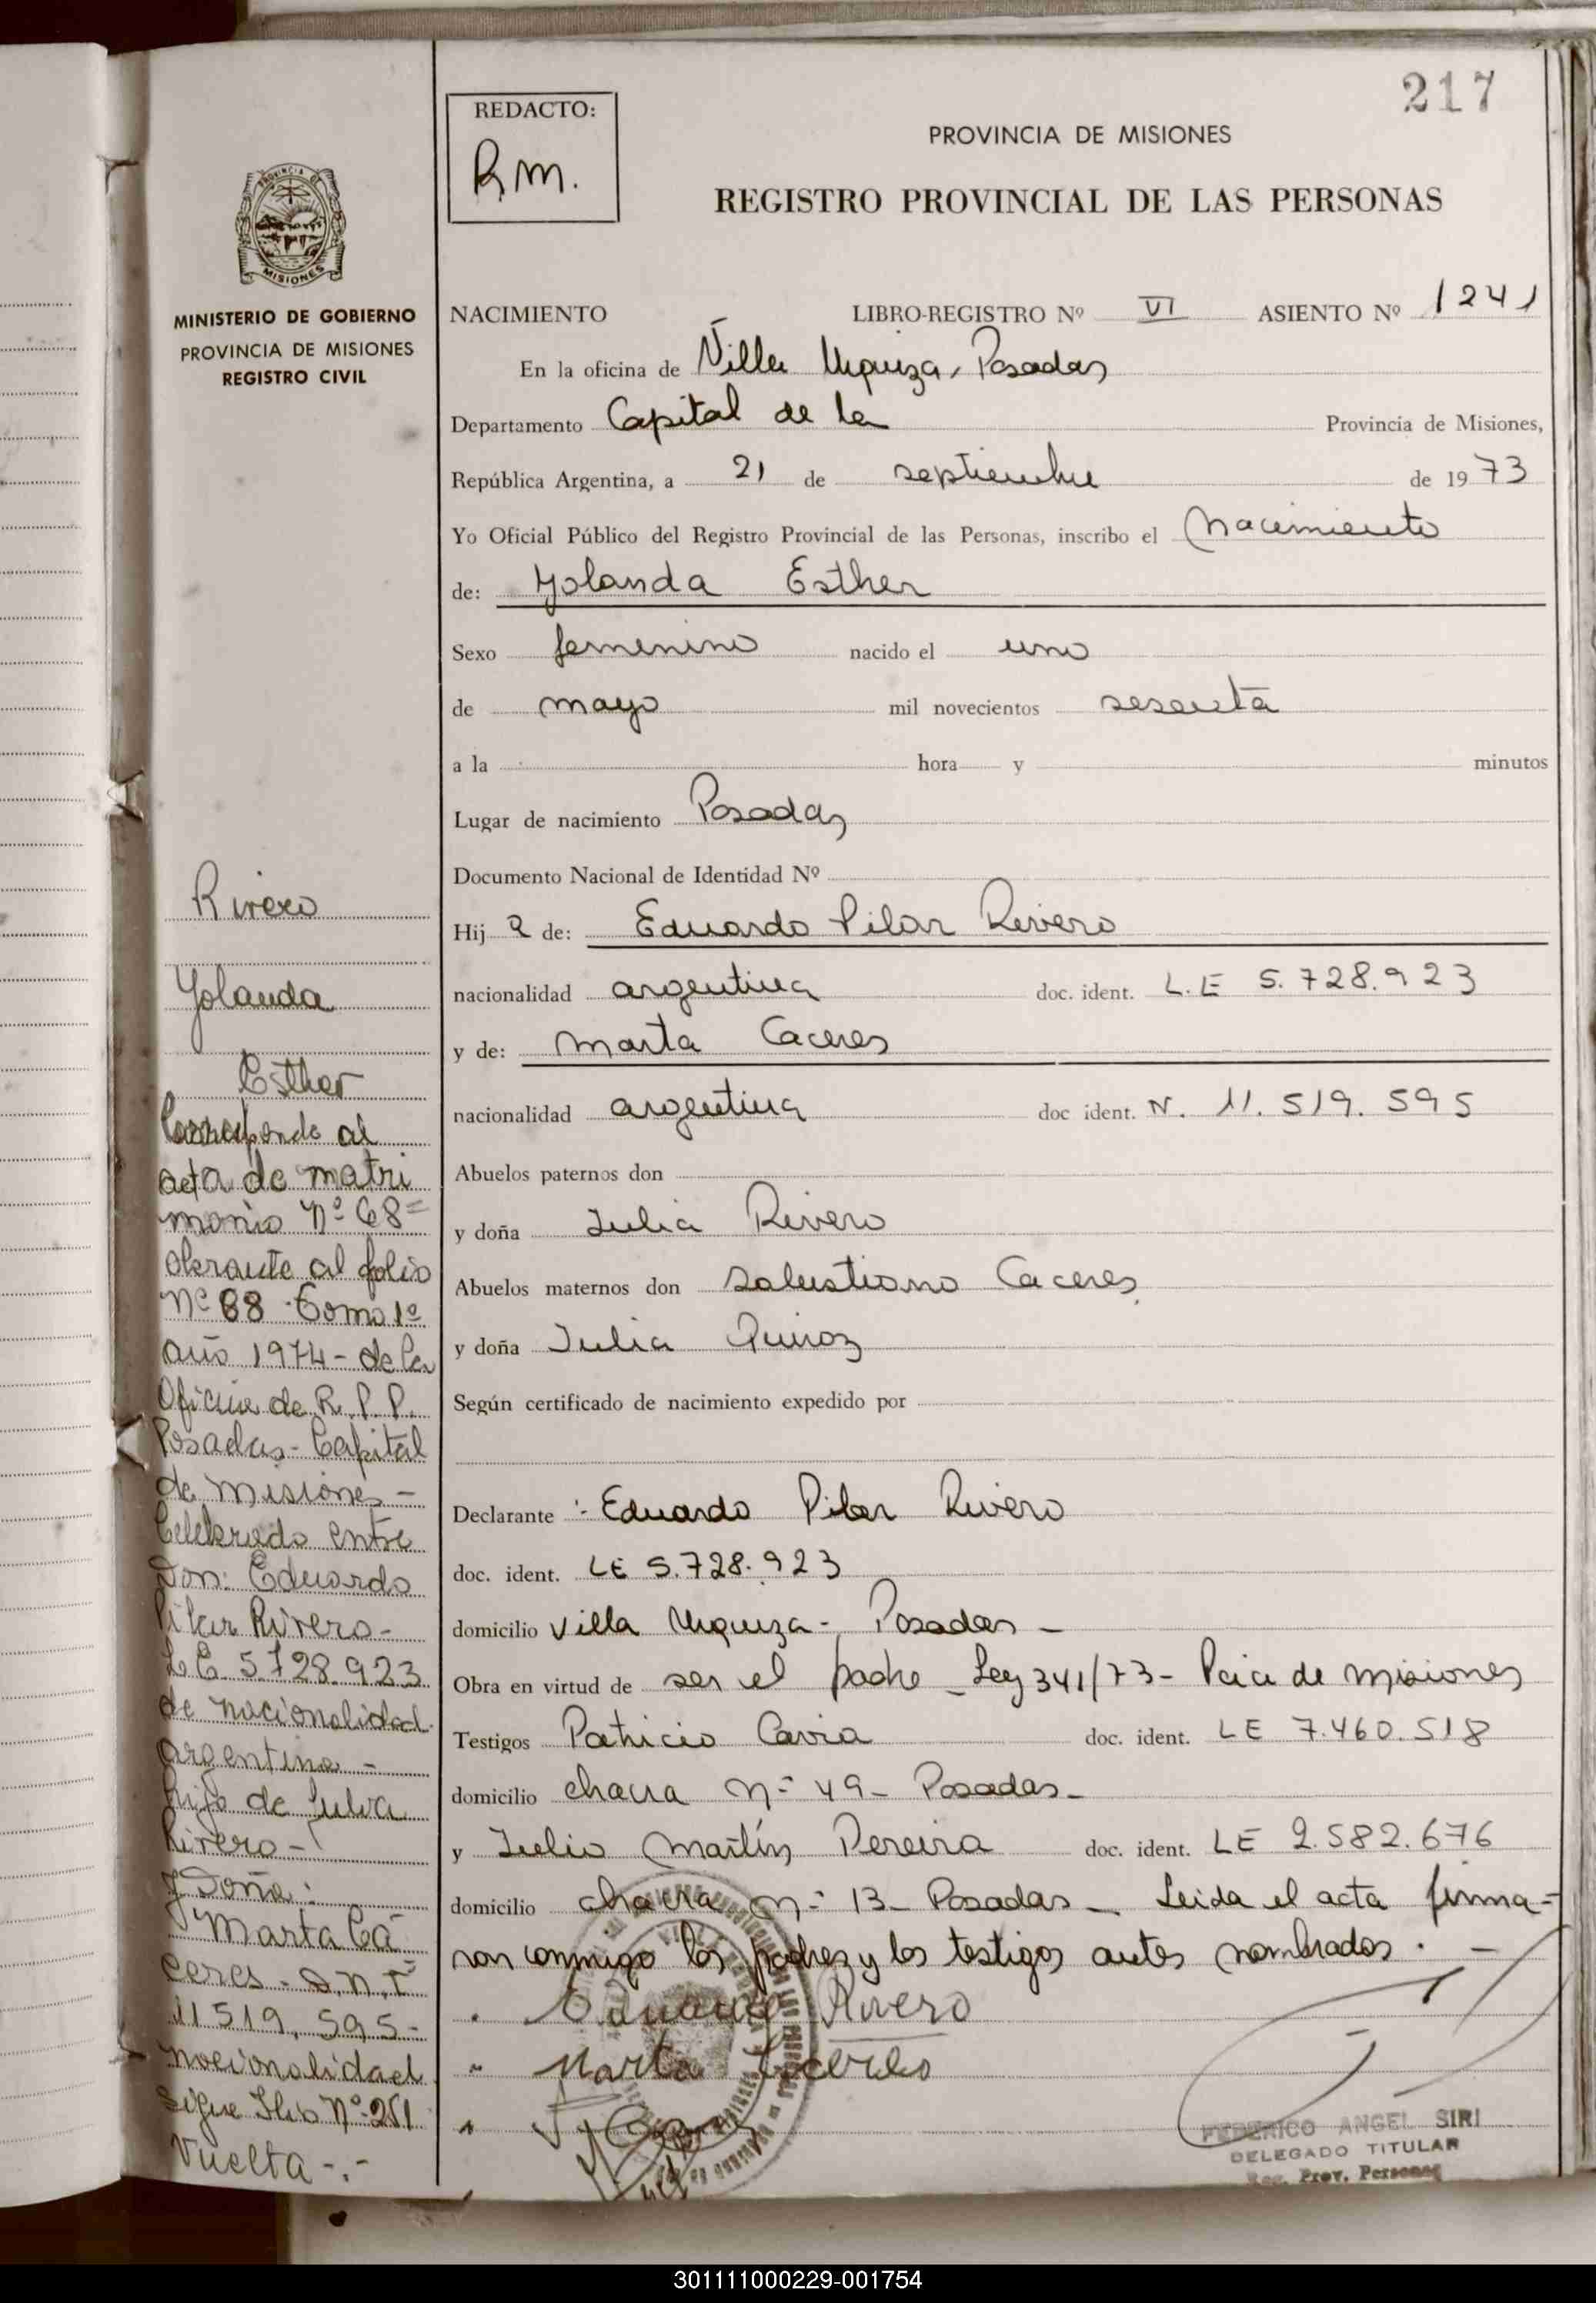 217
REDACTO:
R.M.
PROVINCIA DE MISIONES
REGISTRO PROVINCIAL DE LAS PERSONAS
PROVINCIA DE
MISIONES
MINISTERIO DE GOBIERNO
PROVINCIA DE MISIONES
REGISTRO CIVIL
NACIMIENTO LIBRO-REGISTRO Nº VI ASIENTO Nº 1241
En la oficina de Villa Urquiza, Posadas
Departamento Capital de la Provincia de Misiones,
República Argentina, a 21 de septiembre de 1973
Yo Oficial Público del Registro Provincial de las Personas, inscribo el Nacimiento
de: Yolanda Esther
Sexo femenino nacido el uno
de mayo mil novecientos sesenta
a la hora y minutos
Lugar de nacimiento Posadas
Documento Nacional de Identidad Nº
Hij a de: Eduardo Pilar Rivero
nacionalidad argentina doc. ident. L.E 5.728.923
y de: Marta Caceres
nacionalidad argentina doc ident. N. 11.519.595
Abuelos paternos don
y doña Julia Rivero
Abuelos maternos don Salustiano Caceres
y doña Julia Quiroz
Según certificado de nacimiento expedido por
Declarante :- Eduardo Pilar Rivero
doc. ident. LE 5.728.923
domicilio Villa Urquiza - Posadas -
Obra en virtud de ser el padre - Ley 341/73 - Pcia de Misiones
Testigos Patricio Cavia doc. ident. LE 7.460.518
domicilio chacra nº 49 - Posadas -
y Julio Martín Pereira doc. ident. LE 2.582.676
domicilio chacra nº 13 - Posadas - Leida el acta firma=
ron conmigo los padres y los testigos antes nombrados. -
Eduardo Rivero
Marta Caceres
FEDERICO ANGEL SIRI
DELEGADO TITULAR
Reg. Prov. Personas
Rivero
Yolanda
Esther
Corresponde al
acta de matri
monio Nº 68=
obrante al folio
Nº 68 Tomo 1º
año 1974 - de la
Oficina de R.P.P.
Posadas - Capital
de Misiones -
Celebrado entre
Don: Eduardo
Pilar Rivero -
L.E. 5.728.923
de nacionalidad
argentina -
hijo de Julia
Rivero -
y Doña:
Marta Cá
ceres - D.N.I
11519.595-
nacionalidad
Sigue Flio Nº 251
Vuelta -.-
301111000229-001754